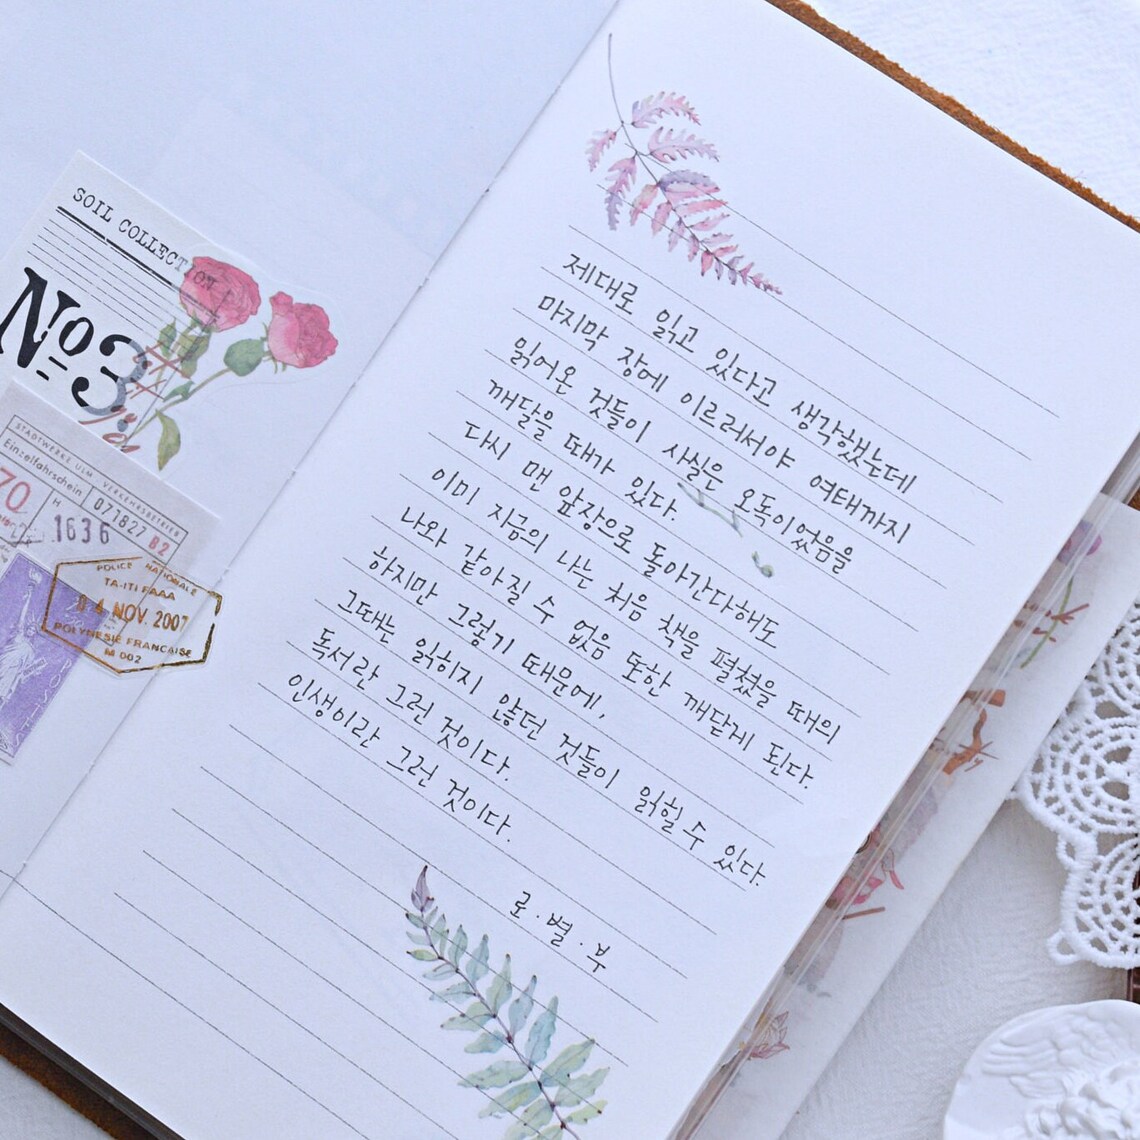 SOIL COLLECTION
No3
STADTWERKE ULM VERKEHRSBETRIEB
Einzelfahrschein
70
H
071827
B2
1636
POLICE NATIONALE
TA-ITI FAAA
0 4 NOV. 2007
POLYNESIE FRANCAISE
M 002
POSTES
제대로 읽고 있다고 생각했는데
마지막 장에 이르러서야 여태까지
읽어온 것들이 사실은 오독이었음을
깨달을 때가 있다.
다시 맨 앞장으로 돌아간다해도
이미 지금의 나는 처음 책을 펼쳤을 때의
나와 같아질 수 없음 또한 깨닫게 된다.
하지만 그렇기 때문에,
그때는 읽히지 않던 것들이 읽힐 수 있다.
독서란 그런 것이다.
인생이란 그런 것이다.
로·별·부